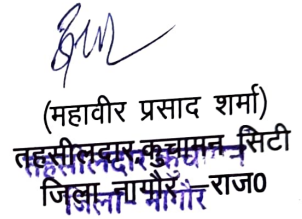 (महावीर प्रसाद शर्मा)
तहसीलदार, कुचामन सिटी
जिला नागौर - राज0
तहसीलदार कुचामन
जिला-नागौर